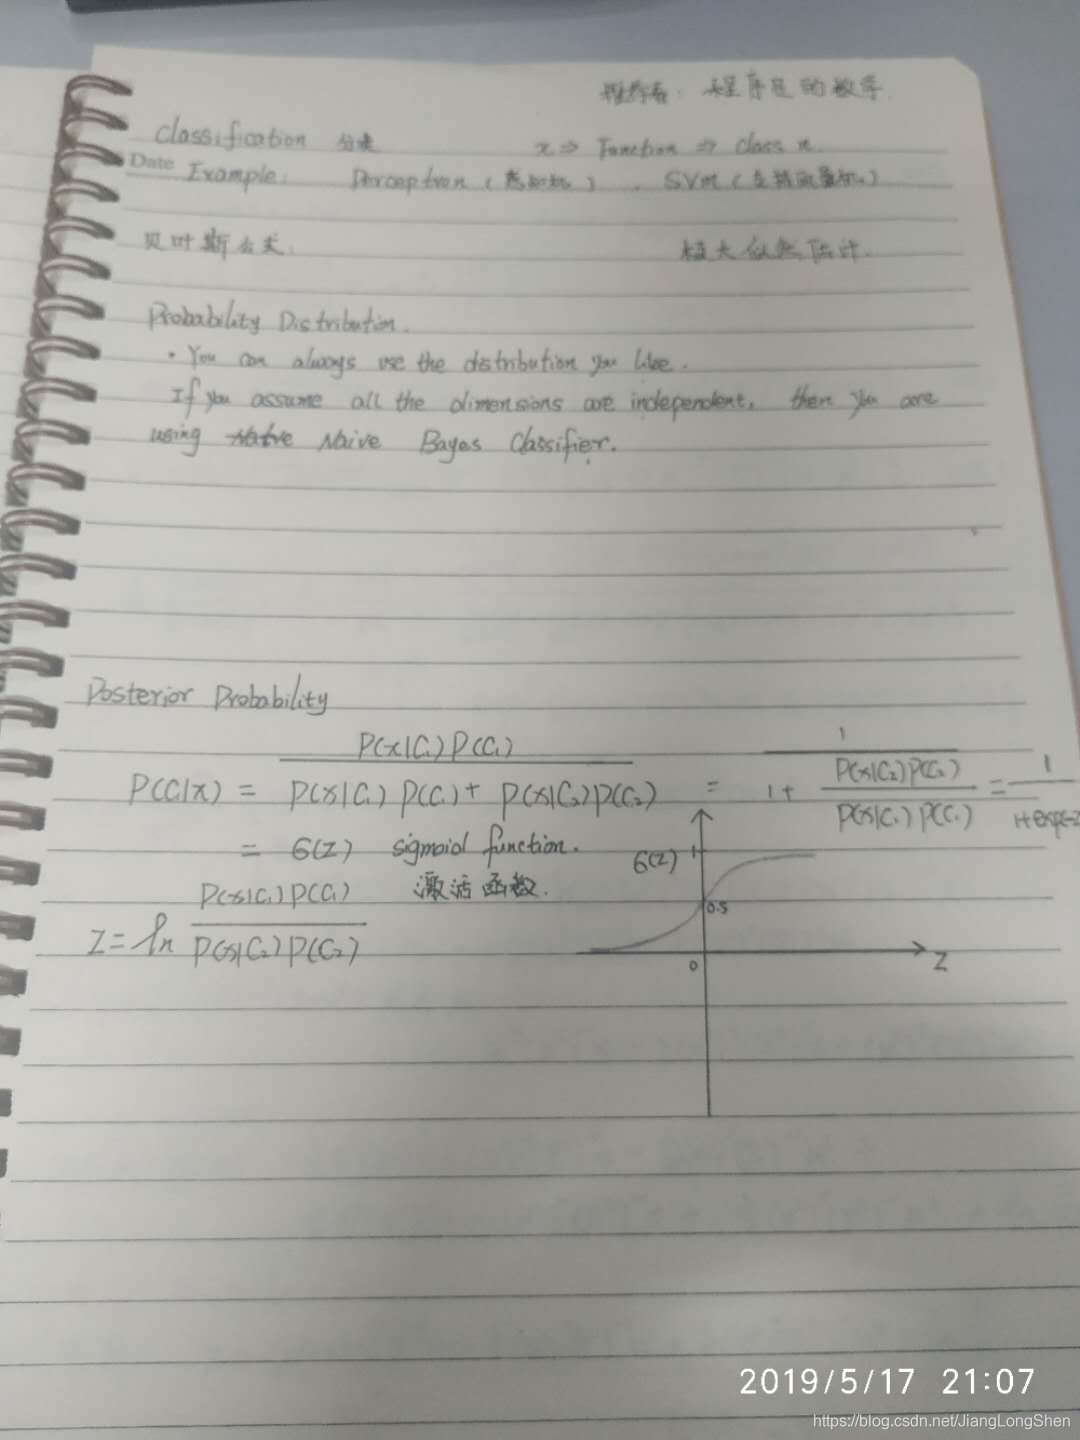 推荐看：程序员的数学
Classification 分类 x ⇒ Function ⇒ Class n.
Date
Example: Perceptron（感知机）, SVM（支持向量机）
贝叶斯公式. 极大似然估计.
Probability Distribution.
· You can always use the distribution you like.
If you assume all the dimensions are independent, then you are
using Naive Bayes Classifier.
Posterior Probability
P(C₁|x) = P(x|C₁)P(C₁) / (P(x|C₁)P(C₁) + P(x|C₂)P(C₂)) = 1 / (1 + P(x|C₂)P(C₂) / (P(x|C₁)P(C₁))) = 1 / (1+exp(-z
= σ(z) sigmoid function.
激活函数.
z = ln P(x|C₁)P(C₁) / (P(x|C₂)P(C₂))
σ(z) 1
0.5
0 z
2019/5/17 21:07
https://blog.csdn.net/JiangLongShen